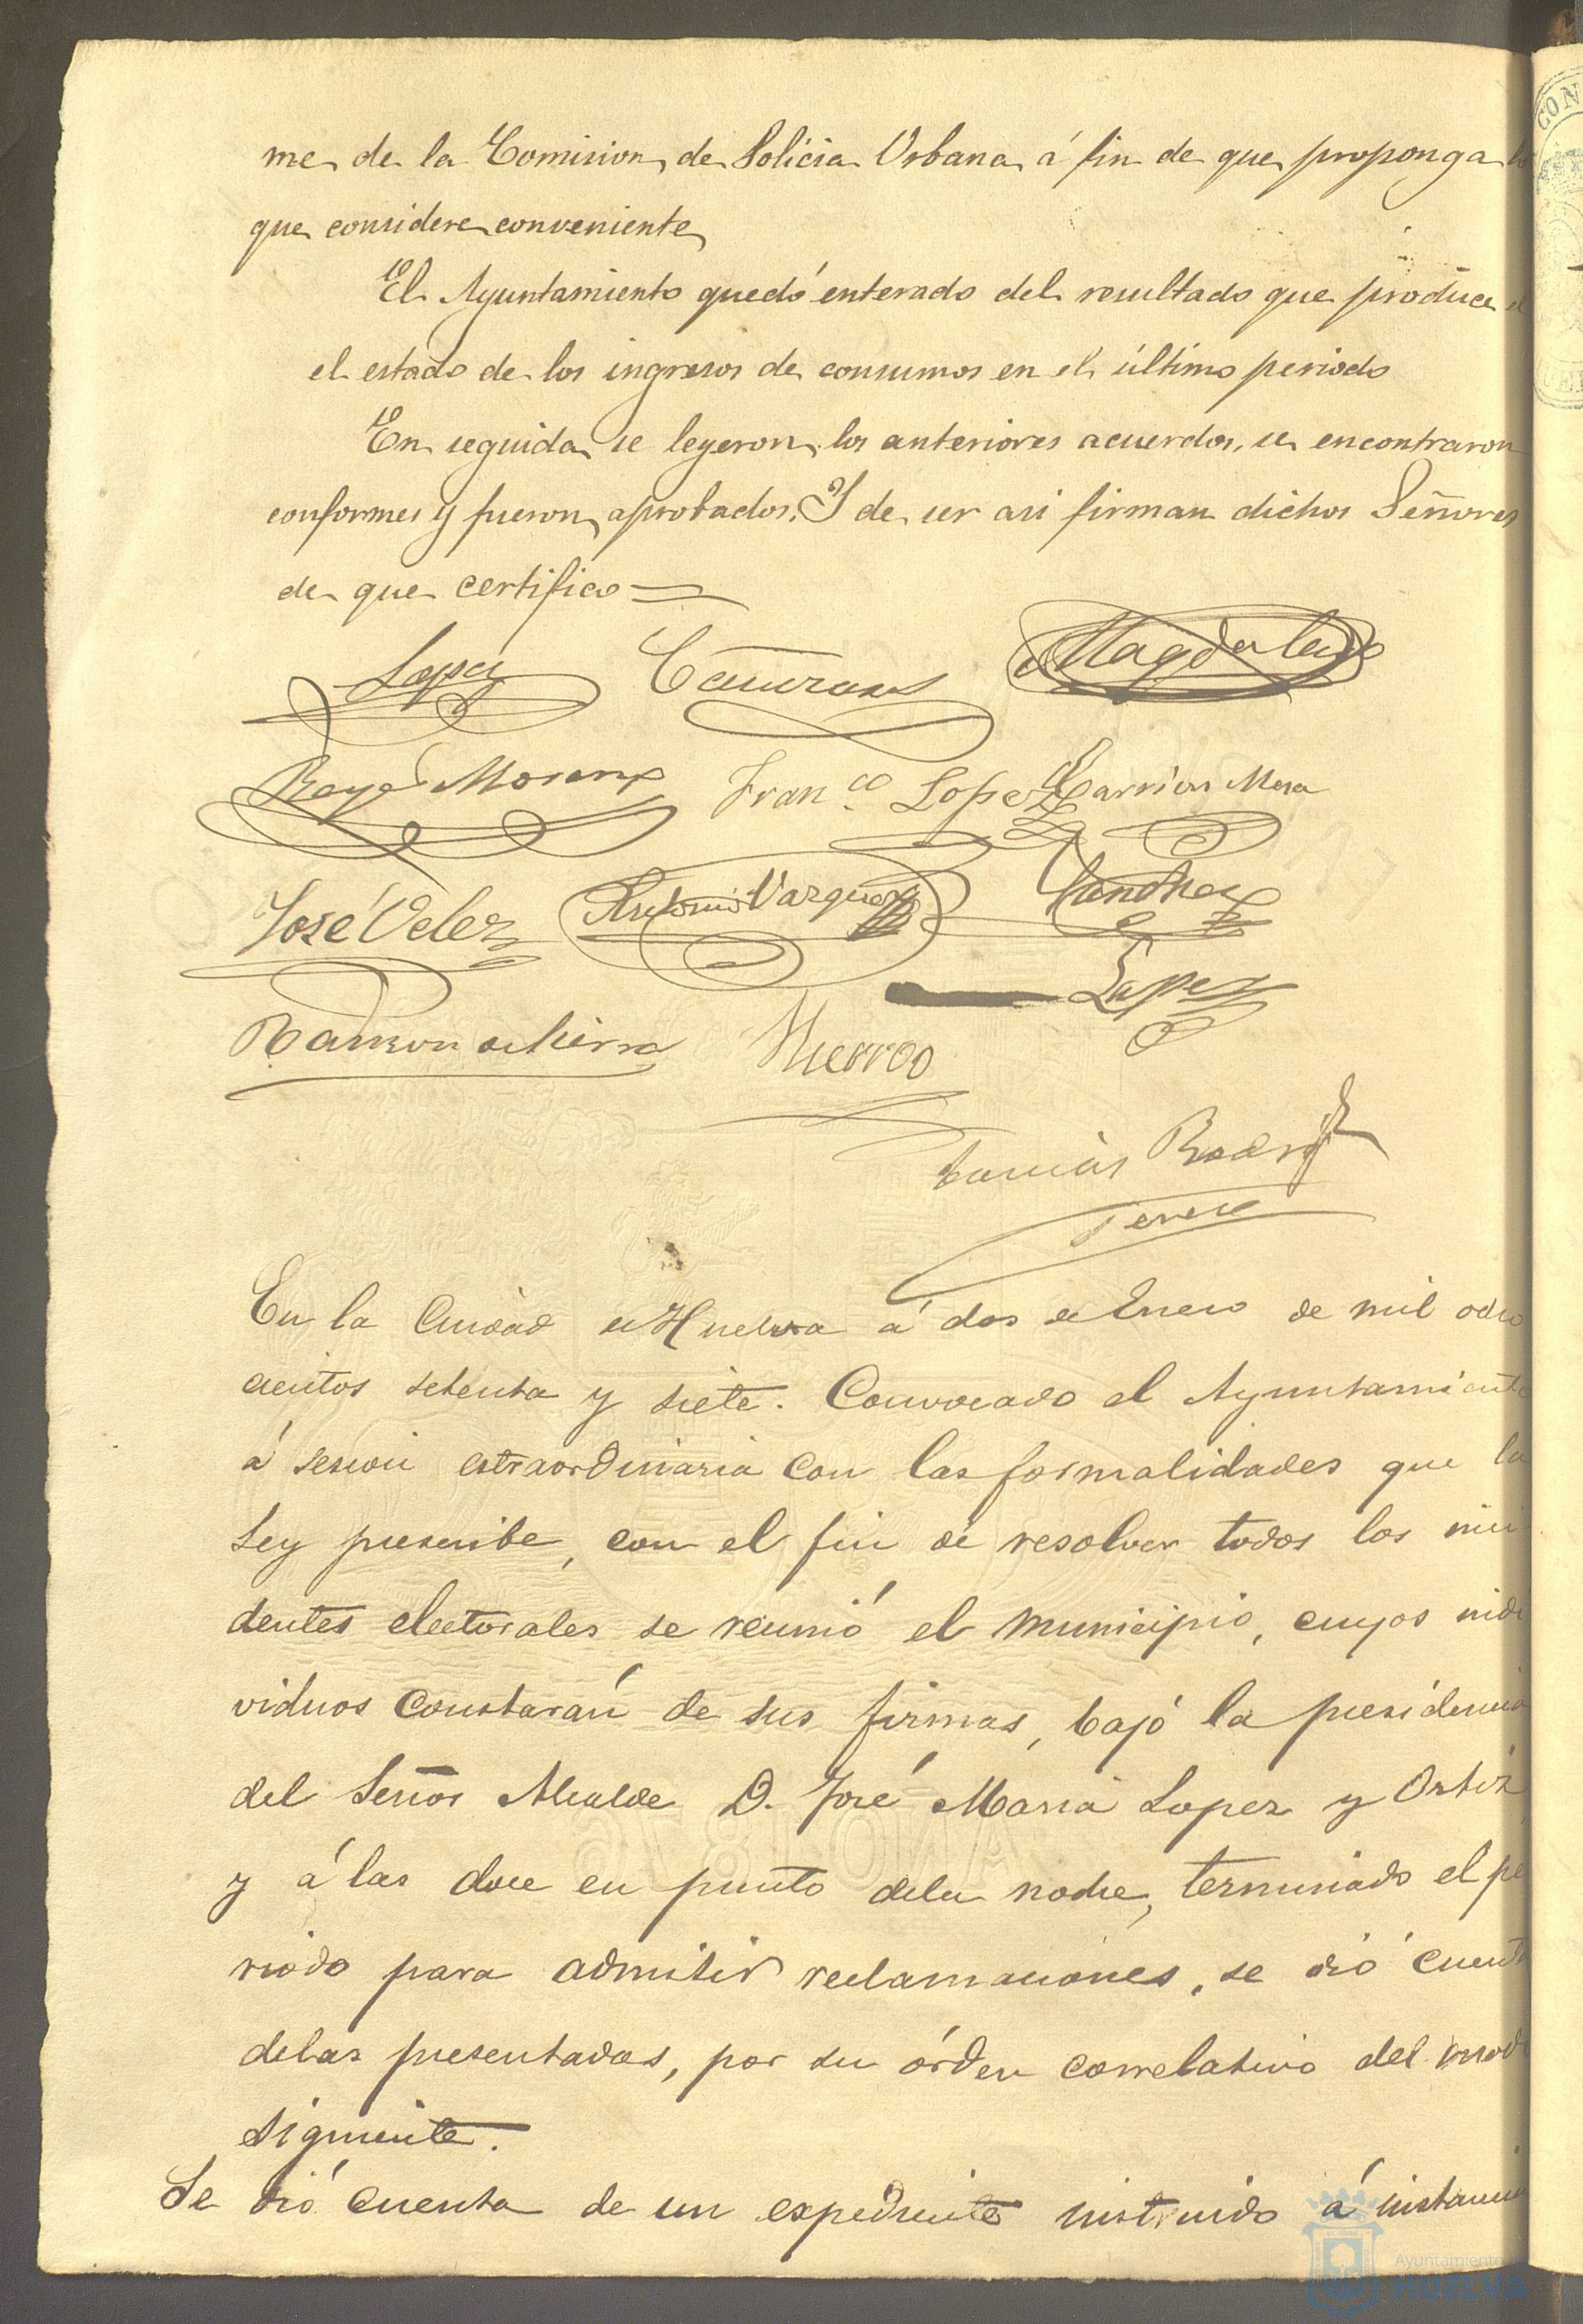 me de la Comision de Policia Urbana á fin de que proponga lo
que considere conveniente
El Ayuntamiento quedó enterado del resultado que produce el
el estado de los ingresos de consumos en el último periodo
En seguida se leyeron los anteriores acuerdos, se encontraron
conformes y fueron aprobados. Y de ser asi firman dichos Señores
de que certifico=
Lopez
Magdaleno
Moreno
Fran.co Lopez
Garrion Mora
José Velez
Antonio Vazquez
Sanchez
Lopez
Ramon de
Hierro
Tomás Rodrig
En la Ciudad de Huelva á dos de Enero de mil ocho
cientos setenta y siete. Convocado el Ayuntamiento
á sesion estraordinaria con las formalidades que la
Ley prescribe, con el fin de resolver todos los inci
dentes electorales se reunió el Municipio, cuyos indi
viduos constarán de sus firmas, bajó la presidencia
del Señor Alcalde D. José Maria Lopez y Ortiz
y á las doce en punto dela noche, terminado el pe
riodo para admitir reclamaciones, se dió cuenta
delas presentadas, por su órden correlativo del modo
siguiente.
Se dió cuenta de un expediente instruido á instancia
AÑO 1876
Ayuntamiento de
HUELVA